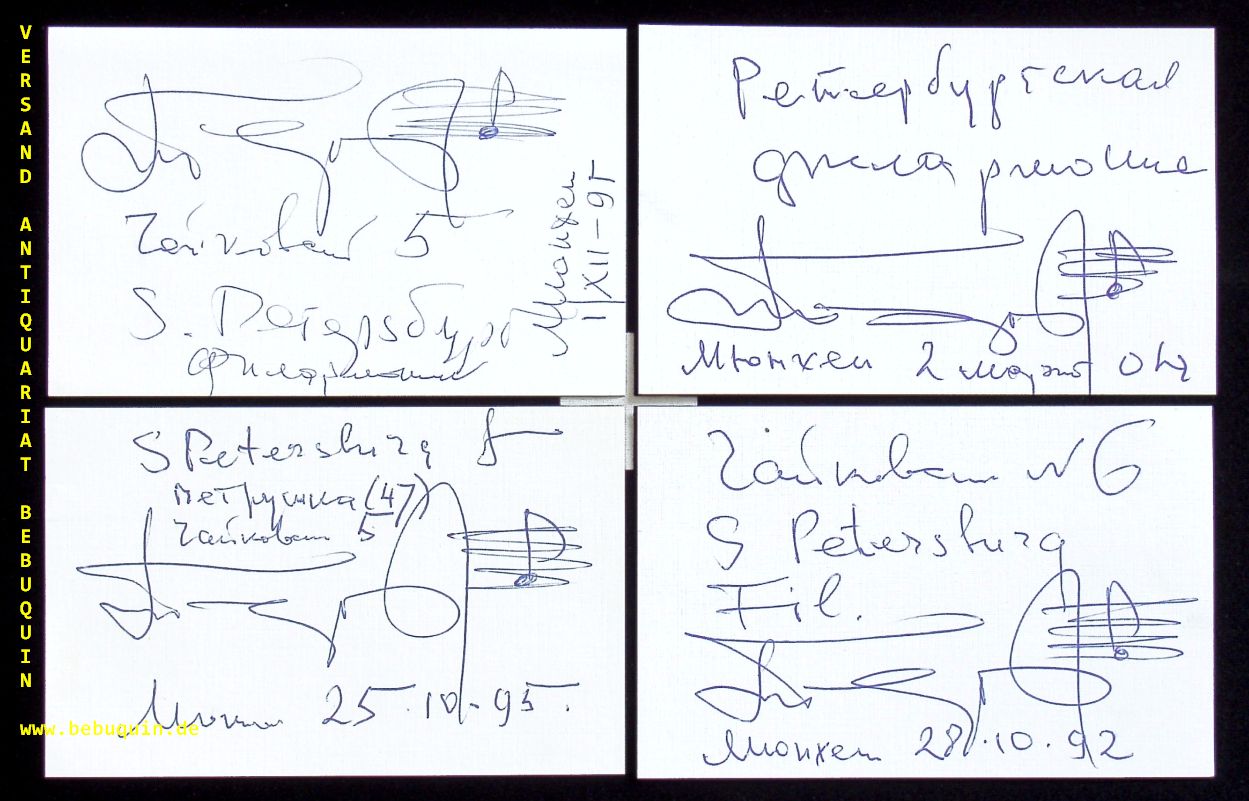 VERSAND ANTIQUARIAT BEBUQUIN
www.bebuquin.de
Чайковский 5
S. Петербург
филармония
Мюнхен
Петербургская
филармония
Мюнхен 2 марта 04
S Petersburg
Петрушка (47)
Чайковский 5
Мюнхен 25.10.95.
Чайковский N 6
S Petersburg
Fil.
Мюнхен 28.10.92